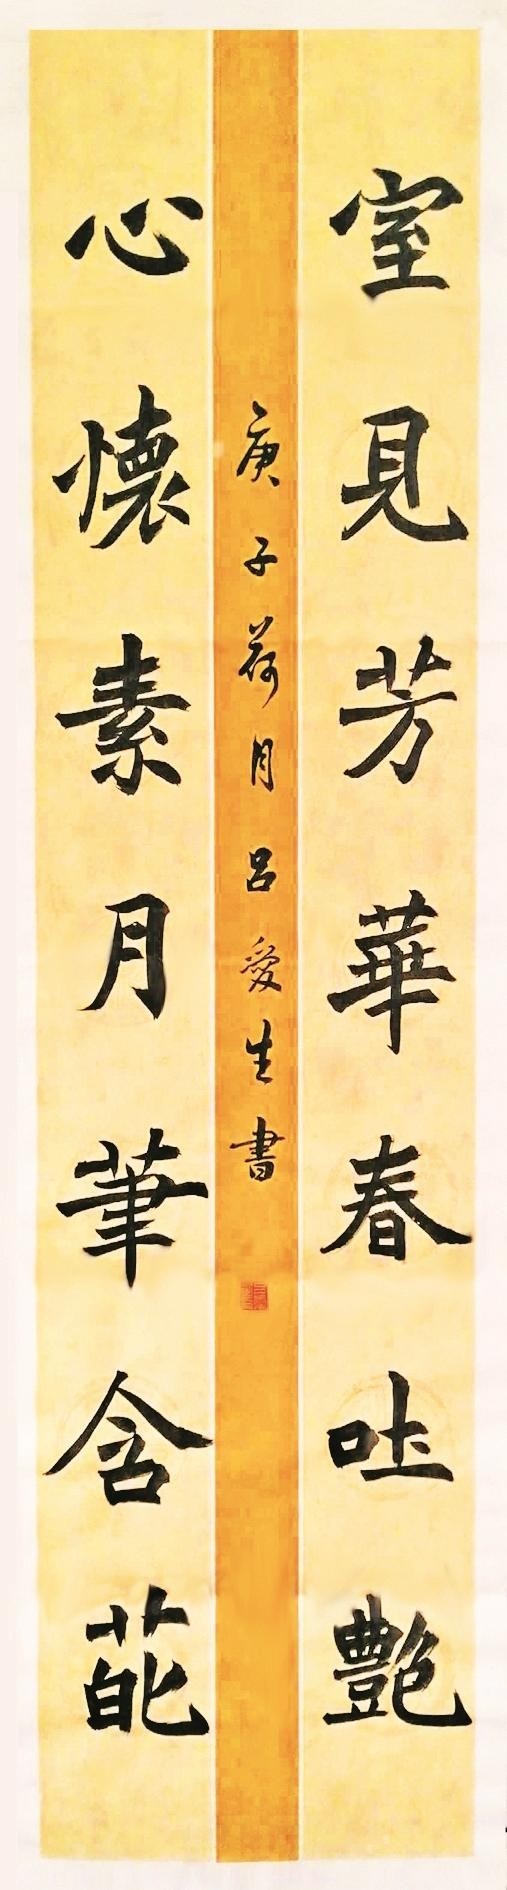 室見芳華春吐艶
心懷素月筆含葩
庚子荷月呂愛生書